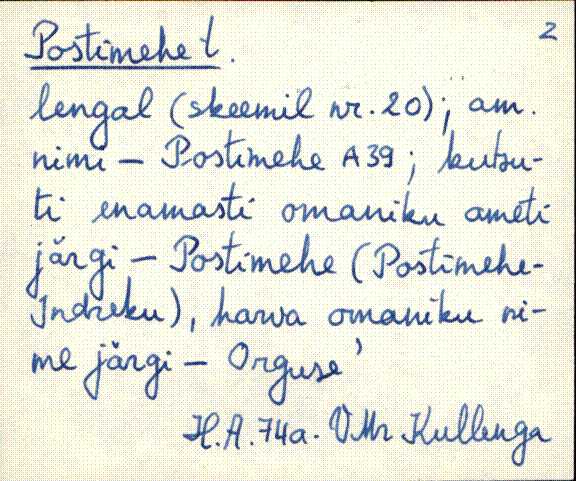 2
Postimehe t.
lengal (skeemil nr. 20); am.
nimi – Postimehe A39; kutsu-
ti enamasti omaniku ameti
järgi – Postimehe (Postimehe-
Indreku), harva omaniku ni-
me järgi – Orguse'
H.A. 74a. VMr Kullenga